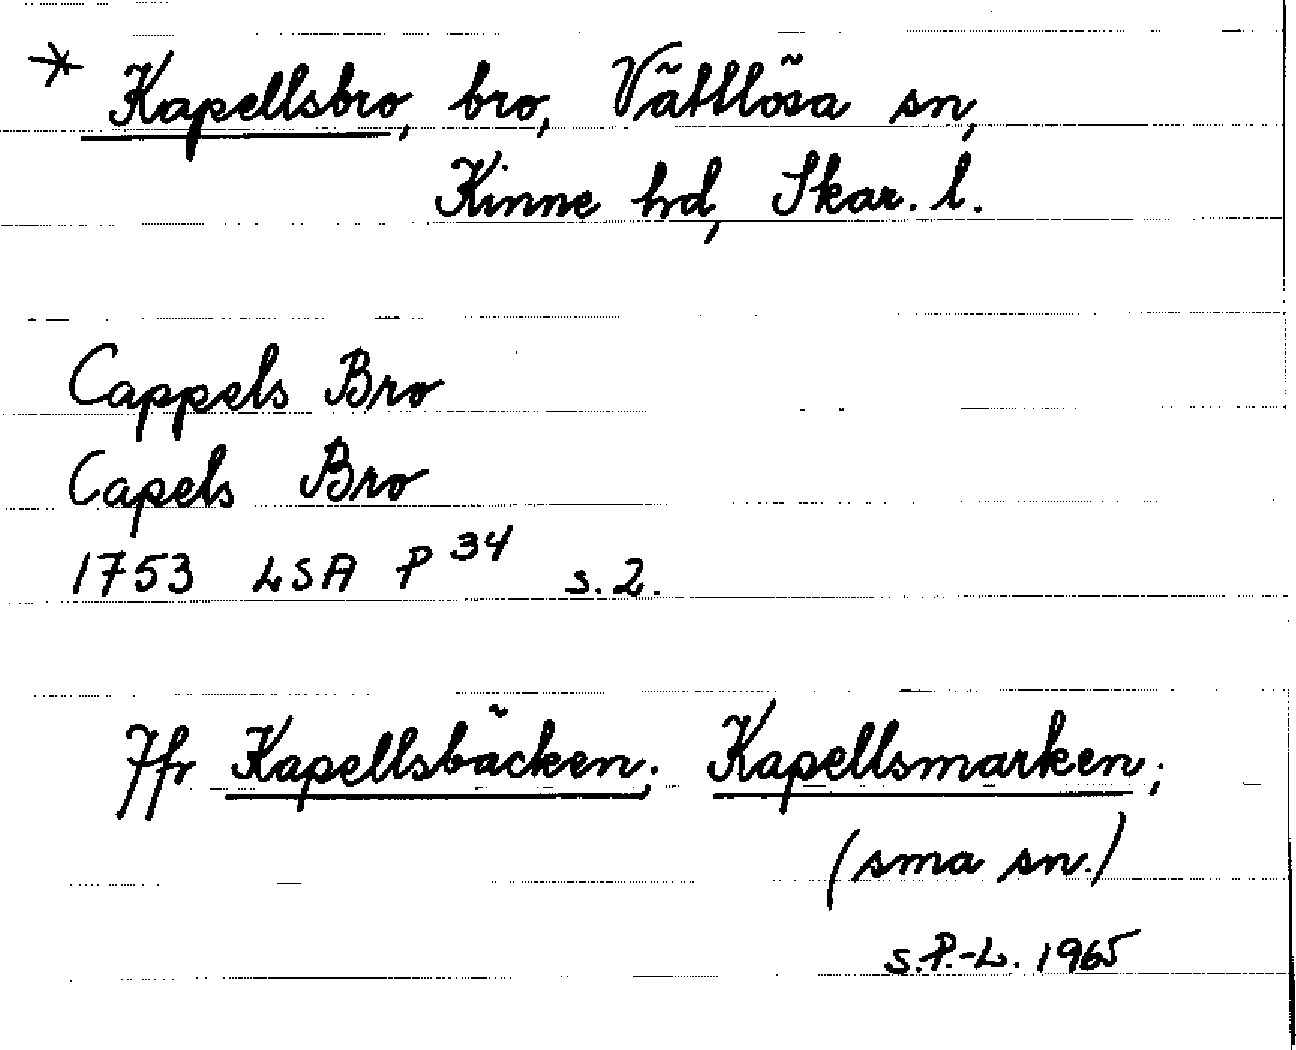 * Kapellsbro, bro, Vättlösa sn,
Kinne hd, Skar. l.
Cappels Bro
Capels Bro
1753 LSA P 34 s. 2.
Jfr Kapellsbäcken; Kapellsmarken;
(sma sn.)
S.P.-L. 1965